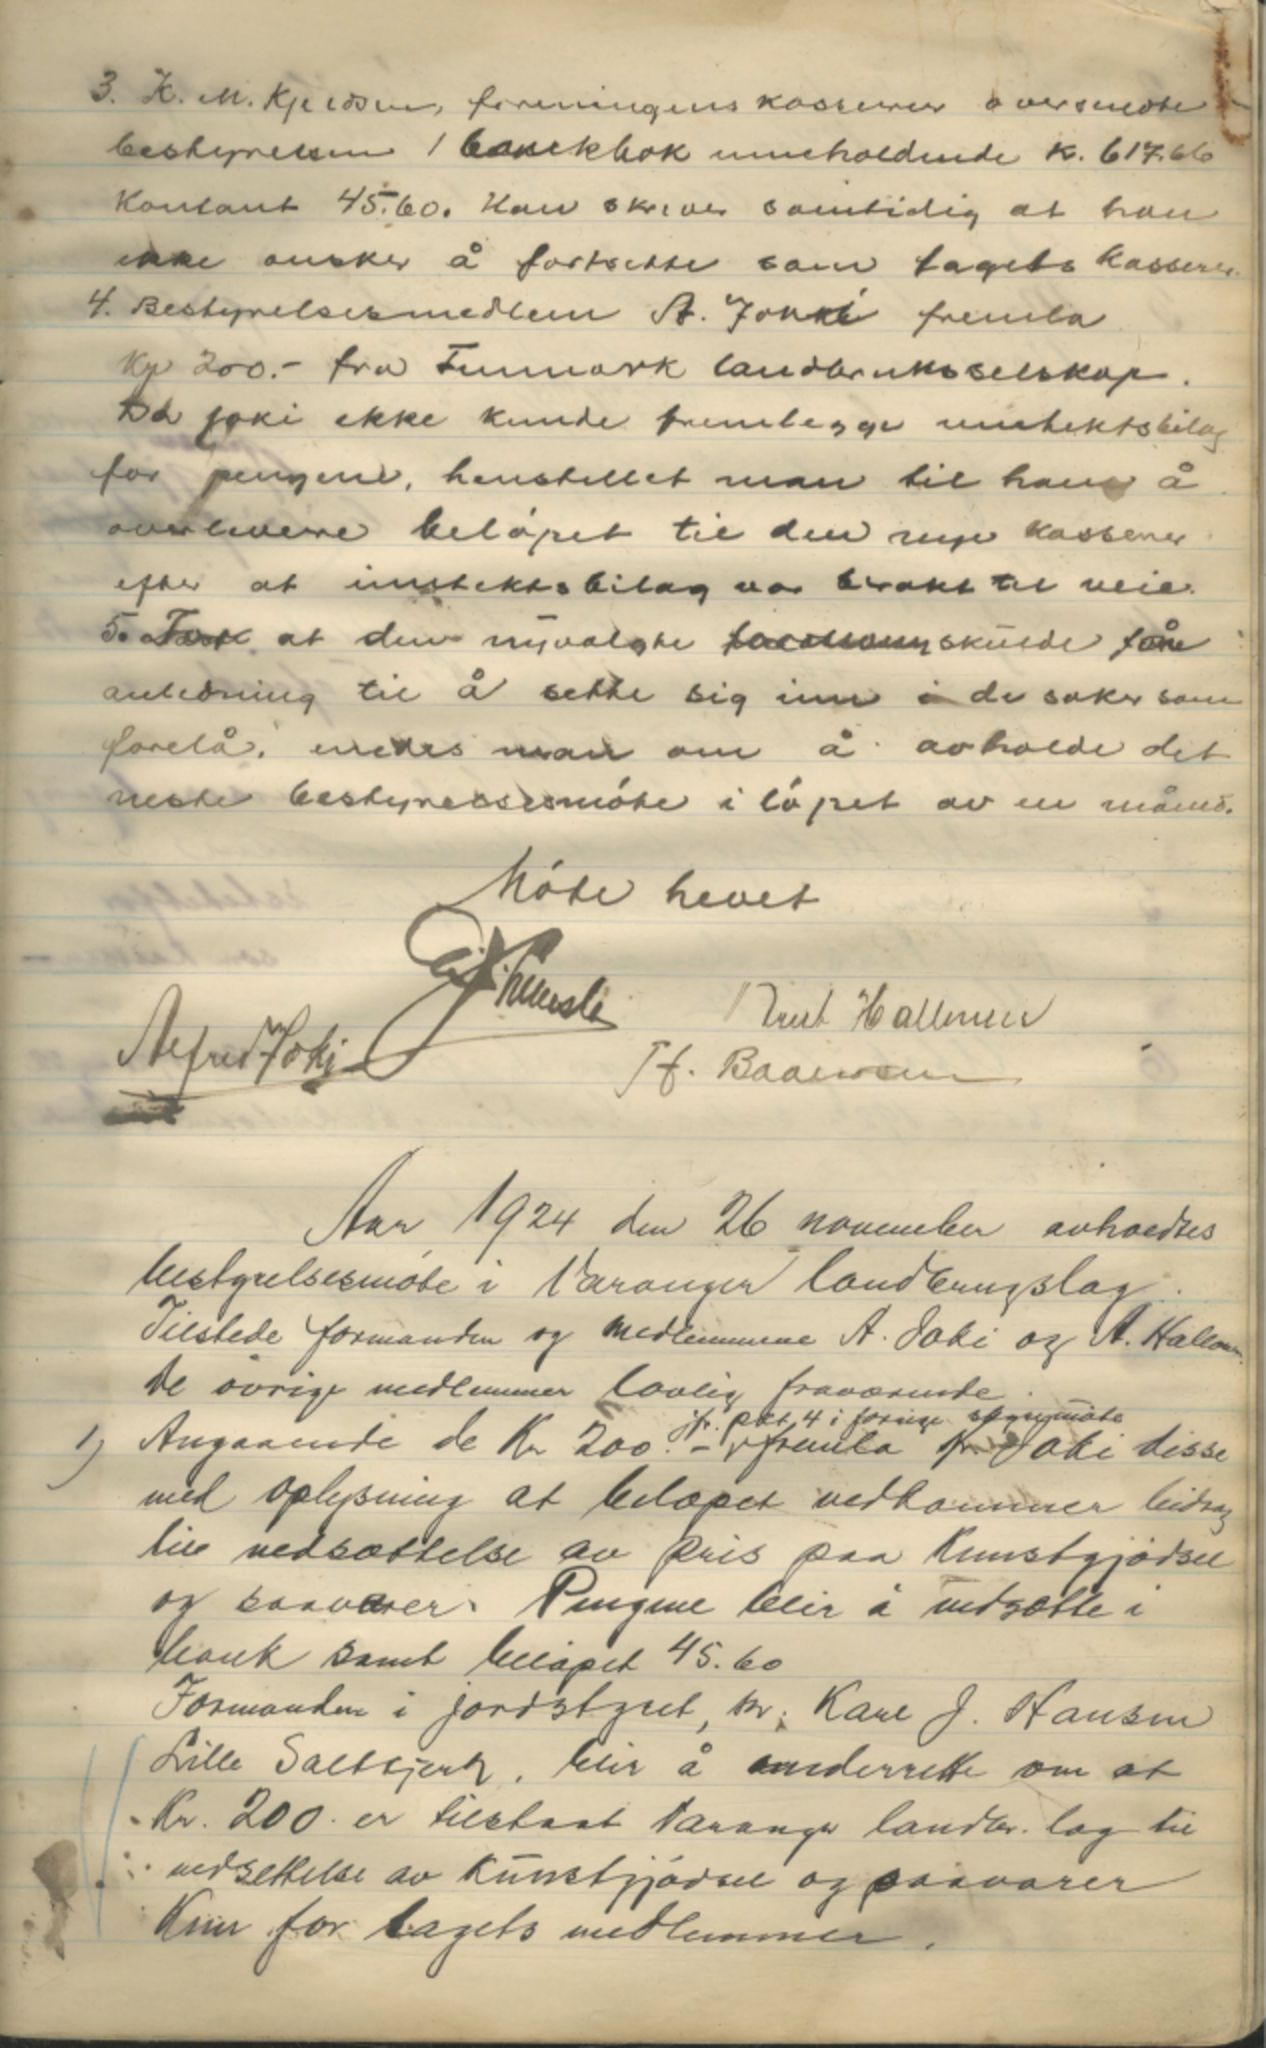 3. K. M. Kjeldsen, foreningens kasserer oversendte
bestyrelsen 1 bankbok inneholdende k. 617.66
Kontant 45.60. Han skriver samtidig at han
ikke ønsker å fortsette som lagets kasserer.
4. Bestyrelsesmedlem A. Joki fremla
Kr 200.- fra Finmark landbruksselskap.
Da Joki ikke kunde fremlegge inntektsbilag
for pengene, henstillet man til ham å
overlevere beløpet til den nye kasserer
efter at inntektsbilag var brakt til veie.
5. at den nyvalgte skulde få
anledning til å sette sig inn i de saker som
forelå, enedes man om å avholde det
neste bestyrelsesmøte i løpet av en måned.
Møte hevet
Alfred Joki
Hallonen
H. Baarsen
Aar 1924 den 26 november avholdtes
bestyrelsesmøte i Varanger landbrugslag.
Tilstede formanden og medlemmene A. Joki og A. Hallonen.
De øvrige medlemmer lovlig fraværende.
jfr. pkt. 4 i forrige styremøte
1) Angaaende de Kr 200.- fremla hr. Joki disse
med oplysning at beløpet vedkommer bidrag
til nedsættelse av pris paa Kunstgjødsel
og saavarer. Pengene blir å indsætte i
bank samt beløpet 45.60
Formanden i jordstyret, hr. Karl J. Hansen
Lille Saltkjerk, blir å underrette om at
Kr. 200. er tilstaat Varanger landbr. lag til
nedsettelse av Kunstgjødsel og saavarer
Kun for lagets medlemmer.